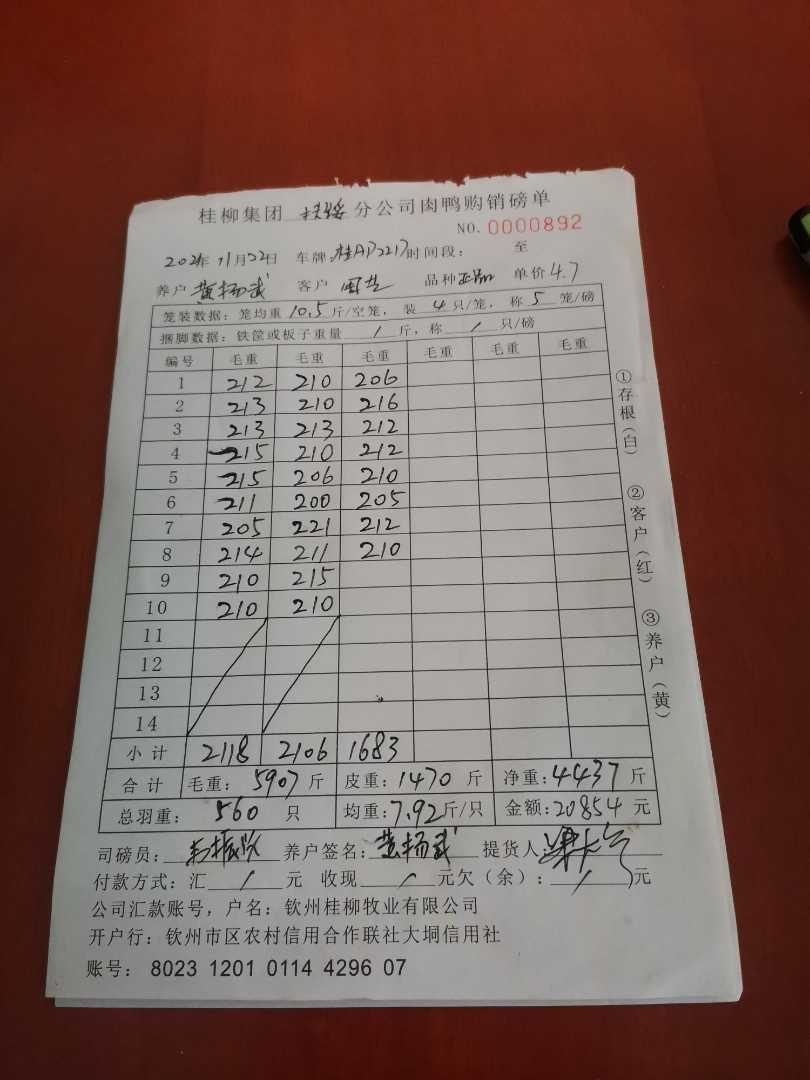 桂柳集团 扶绥 分公司肉鸭购销磅单
NO. 0000892
202 年 11月22日 车牌: 时间段: 至
养户 黄扬武 客户 品种 正品 单价 4.7
笼装数据: 笼均重 10.5 斤/空笼, 装 4 只/笼, 称 5 笼/磅
捆脚数据: 铁筐或板子重量 / 斤, 称 / 只/磅
编号 毛重 毛重 毛重 毛重 毛重 毛重
1 212 210 206
2 213 210 216
3 213 213 212
4 215 210 212
5 215 206 210
6 211 200 205
7 205 221 212
8 214 211 210
9 210 215
10 210 210
11
12
13
14
小计 2118 2106 1683
合计 毛重: 5907 斤 皮重: 1470 斤 净重: 4437 斤
总羽重: 560 只 均重: 7.92 斤/只 金额: 20854 元
司磅员: 养户签名: 黄扬武 提货人:
付款方式: 汇 / 元 收现 / 元 欠(余): / 元
公司汇款账号, 户名: 钦州桂柳牧业有限公司
开户行: 钦州市区农村信用合作联社大垌信用社
账号: 8023 1201 0114 4296 07
①存根(白)
②客户(红)
③养户(黄)